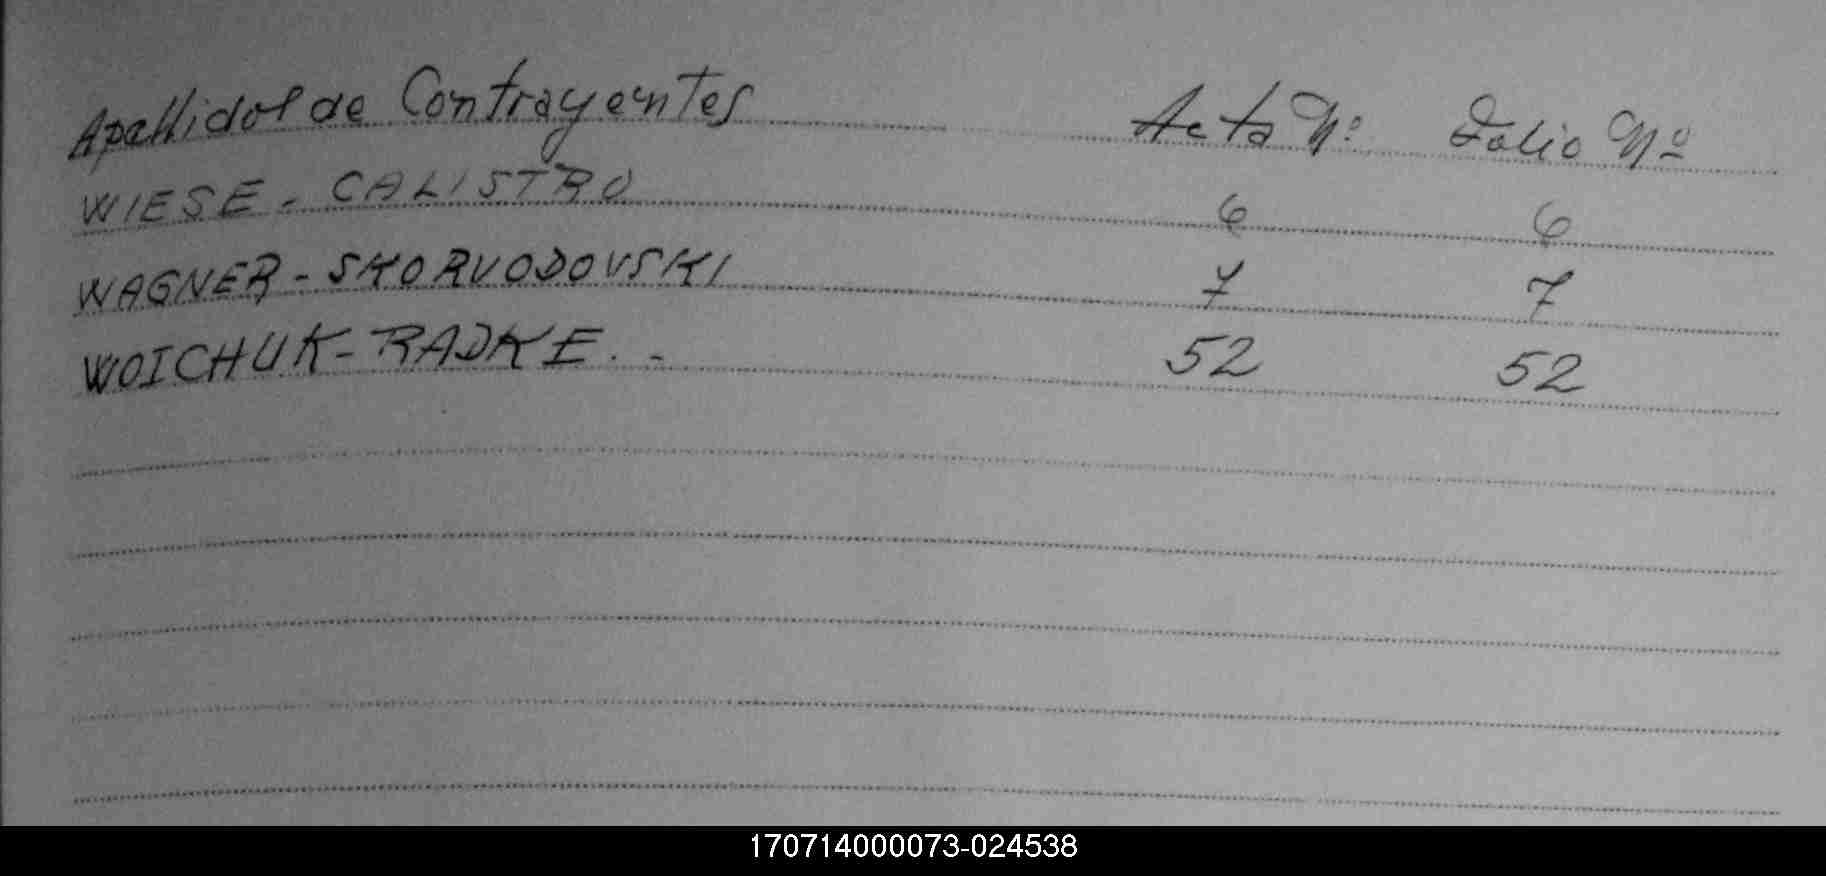 Apellidos de Contrayentes Acta Nº Folio Nº
WIESE - CALISTRO 6 6
WAGNER - SKORVODOVSKI 7 7
WOICHUK - RADKE. - 52 52
170714000073-024538